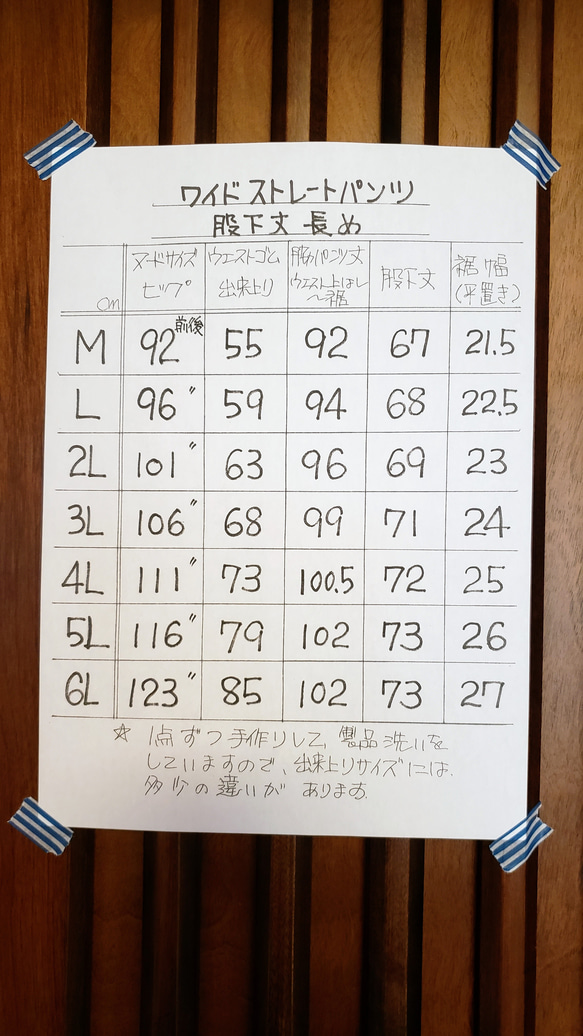 ワイドストレートパンツ
股下丈 長め
cm ヌードサイズ ヒップ ウエストゴム 出来上り 脇パンツ丈 ウエスト上はし〜裾 股下丈 裾幅 (平置き)
M 92前後 55 92 67 21.5
L 96〃 59 94 68 22.5
2L 101〃 63 96 69 23
3L 106〃 68 99 71 24
4L 111〃 73 100.5 72 25
5L 116〃 79 102 73 26
6L 123〃 85 102 73 27
☆ 1点ずつ手作りして、製品洗いを
していますので、出来上りサイズには
多少の違いが あります。